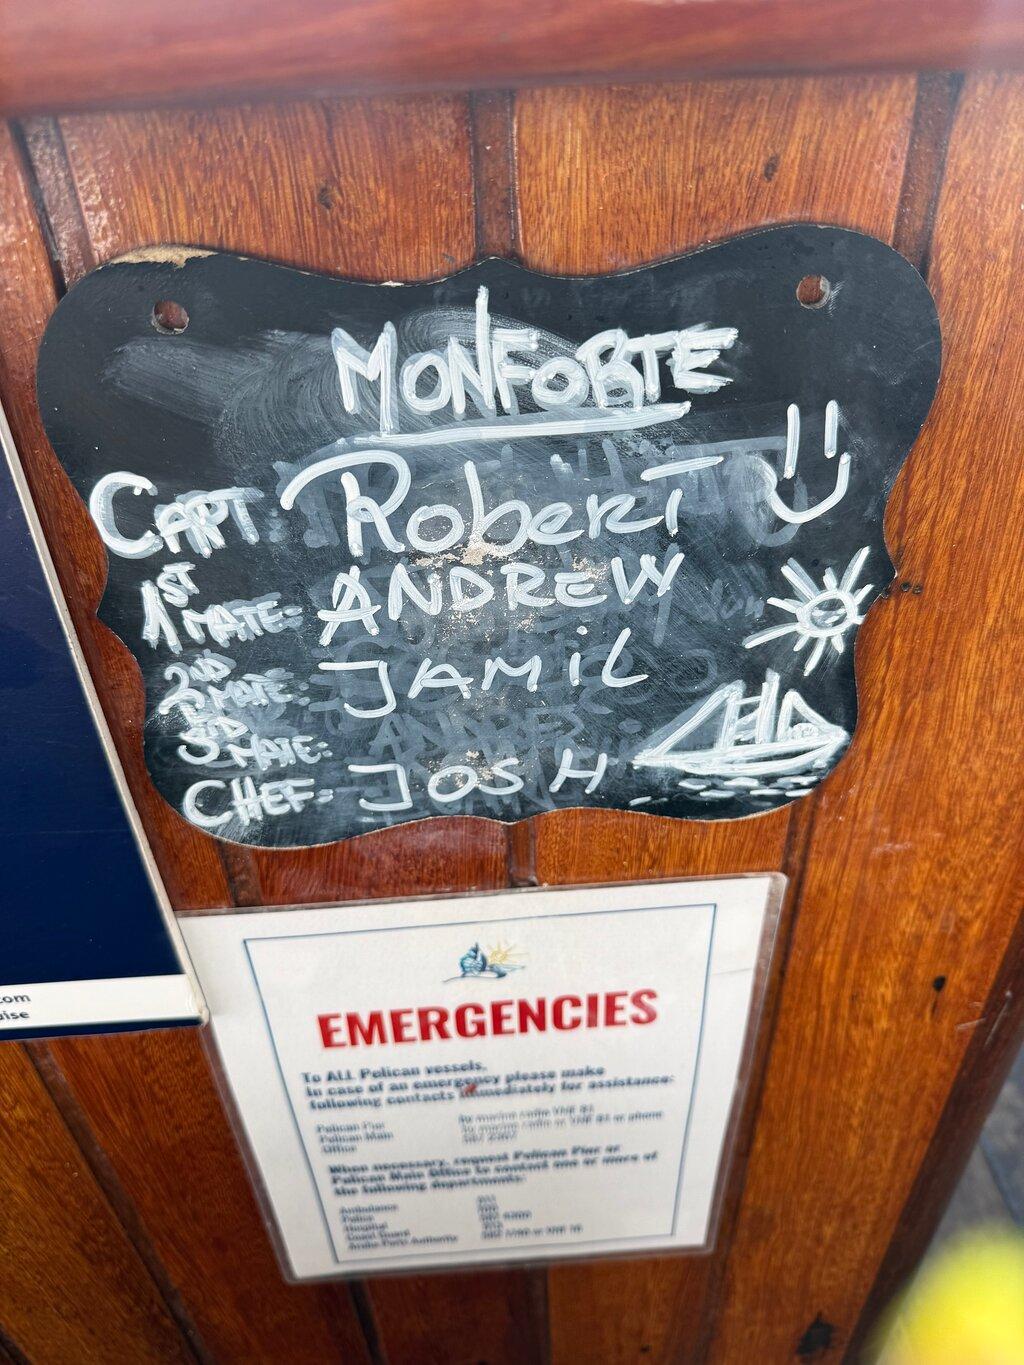 MONFORTE
CAPT: RobERT
1ST MATE: ANDREW
2ND MATE: JAMiL
3RD MATE:
CHEF: JOSH
.com
uise
EMERGENCIES
To ALL Pelican vessels,
In case of an emergency please make
following contacts immediately for assistance:
Pelican Pier By marine radio VHF 81
Pelican Main By marine radio or VHF 81 or phone
Office
When necessary, request Pelican Pier or
Pelican Main Office to contact one or more of
the following departments:
Ambulance 911
Police
Hospital
Coast Guard
Aruba Ports Authority